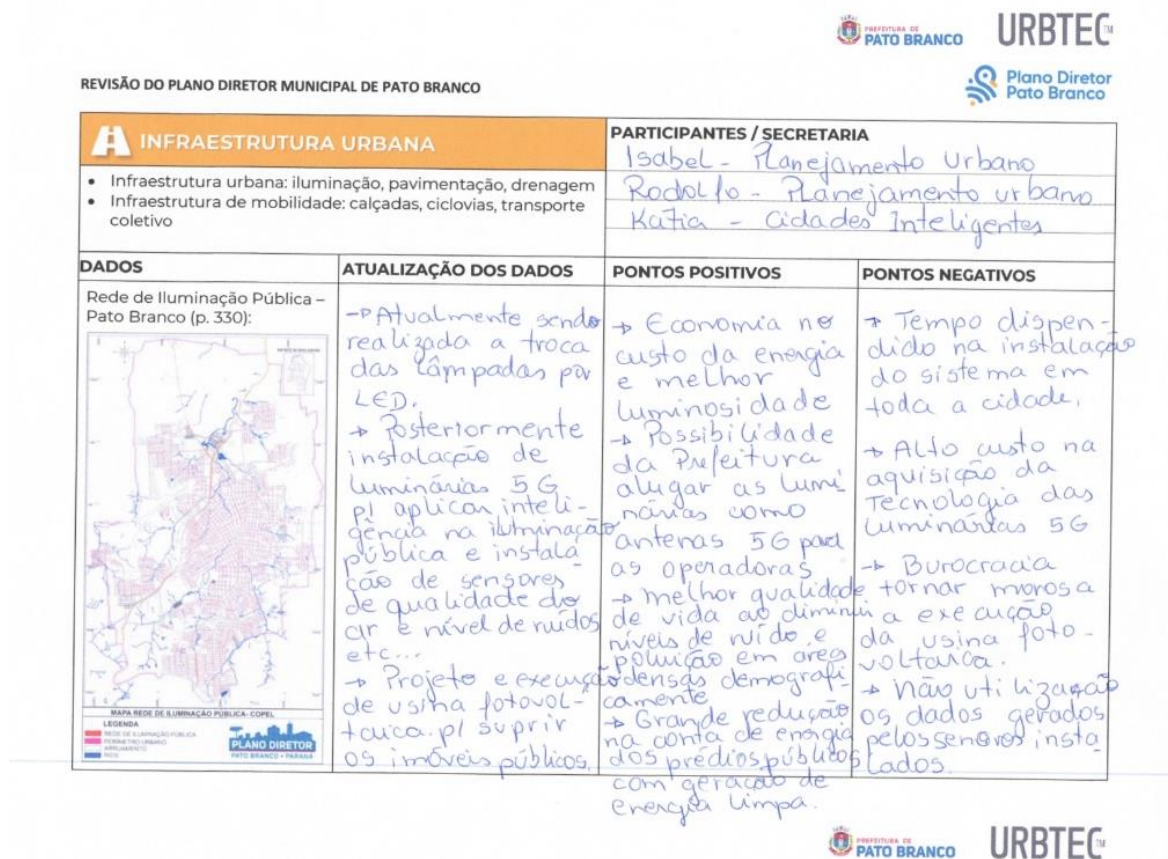 PREFEITURA DE
PATO BRANCO
URBTEC™
REVISÃO DO PLANO DIRETOR MUNICIPAL DE PATO BRANCO
Plano Diretor
Pato Branco
INFRAESTRUTURA URBANA
• Infraestrutura urbana: iluminação, pavimentação, drenagem
• Infraestrutura de mobilidade: calçadas, ciclovias, transporte
coletivo
PARTICIPANTES / SECRETARIA
Isabel - Planejamento Urbano
Rodolfo - Planejamento urbano
Katia - Cidades Inteligentes
DADOS
Rede de Iluminação Pública –
Pato Branco (p. 330):
MAPA REDE DE ILUMINAÇÃO PÚBLICA- COPEL
LEGENDA
REDE DE ILUMINAÇÃO PÚBLICA
PERÍMETRO URBANO
ARRUAMENTO
RIOS
PLANO DIRETOR
PATO BRANCO • PARANÁ
ATUALIZAÇÃO DOS DADOS
→ Atualmente sendo
realizada a troca
das lâmpadas por
LED.
→ Posteriormente
instalação de
luminárias 5G
p/ aplicar inteli-
gência na iluminação
pública e instala
ção de sensores
de qualidade do
ar e nível de ruídos
etc...
→ Projeto e execução
de usina fotovol-
taica p/ suprir
os imóveis públicos.
PONTOS POSITIVOS
→ Economia no
custo da energia
e melhor
luminosidade
→ Possibilidade
da Prefeitura
alugar as lumi
nárias como
antenas 5G para
as operadoras
→ melhor qualidade
de vida ao diminuir
níveis de ruído e
poluição em areas
densas demografi
camente
→ Grande redução
na conta de energia
dos prédios públicos
com geração de
energia limpa.
PONTOS NEGATIVOS
→ Tempo dispen-
dido na instalação
do sistema em
toda a cidade.
→ Alto custo na
aquisição da
Tecnologia das
Luminárias 5G
→ Burocracia
tornar morosa
a execução
da usina foto-
voltaica.
→ Não utilização
os dados gerados
pelos sensores insta
lados.
PREFEITURA DE
PATO BRANCO
URBTEC™